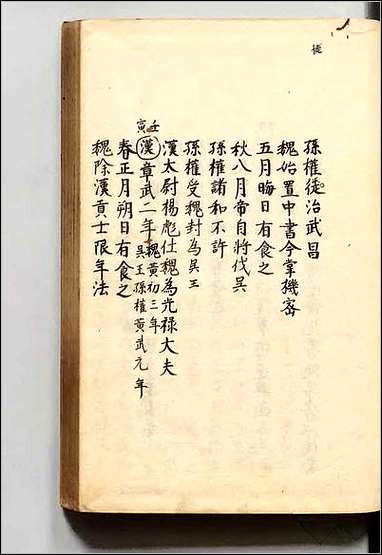 徙
孫權徙治武昌
魏始置中書令掌機密
五月晦日有食之
秋八月帝自將伐吳
孫權請和不許
孫權受魏封為吳王
漢太尉楊彪仕魏為光祿大夫
壬寅
漢章武二年 魏黃初三年 吳王孫權黃武元年
春正月朔日有食之
魏除漢貢士限年法